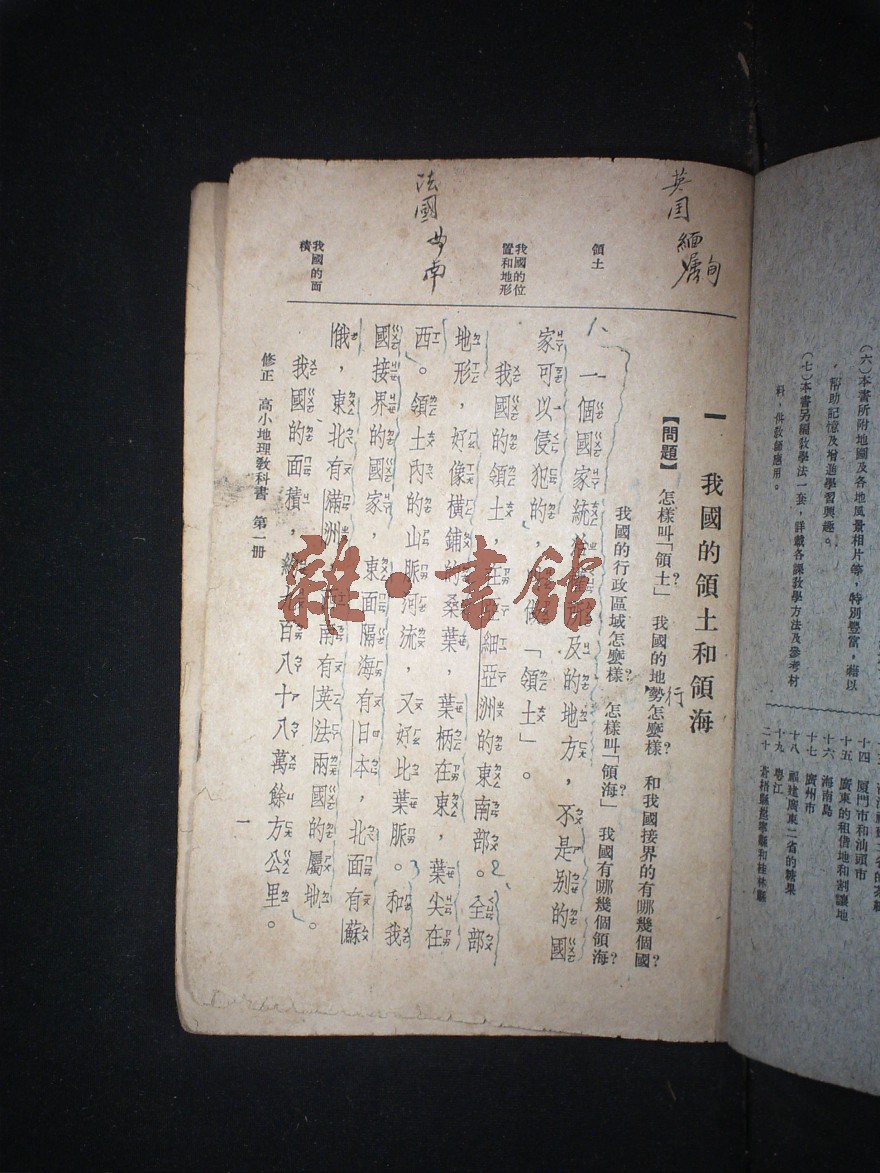 （六）本書所附地圖及各地風景相片等，特別豐富，藉以
幫助記憶及增進學習興趣。
（七）本書另編教學法一套，詳載各課教學方法及參考材
料，供教師應用。
十四 厦門市和汕頭市
十五 廣東的租借地和割讓地
十六 海南島
十七 廣州市
十八 福建廣東二省的糖果
十九 粵江
二十 蒼梧縣邕寧縣和桂林縣
英国 緬甸
一 我國的領土和領海
【問題】 怎樣叫「領土」？ 我國的地勢怎麼樣？ 和我國接界的有哪幾個國？
行
我國的行政區域怎麼樣？ 怎樣叫「領海」？ 我國有哪幾個領海？
領土
一個國家統治權所及的地方，不是別的國
家可以侵犯的，叫做「領土」。
我國的位
置和地形
我國的領土，在亞細亞洲的東南部。全部
地形，好像橫鋪的桑葉，葉柄在東，葉尖在
法國 安南
西。領土內的山脈河流，又好比葉脈。和我
國接界的國家，東面隔海有日本，北面有蘇
俄，東北有滿洲，西南有英法兩國的屬地。
我國的面
積
我國的面積，約九百八十八萬餘方公里。
修正 高小地理教科書 第一册
一
雜·書館